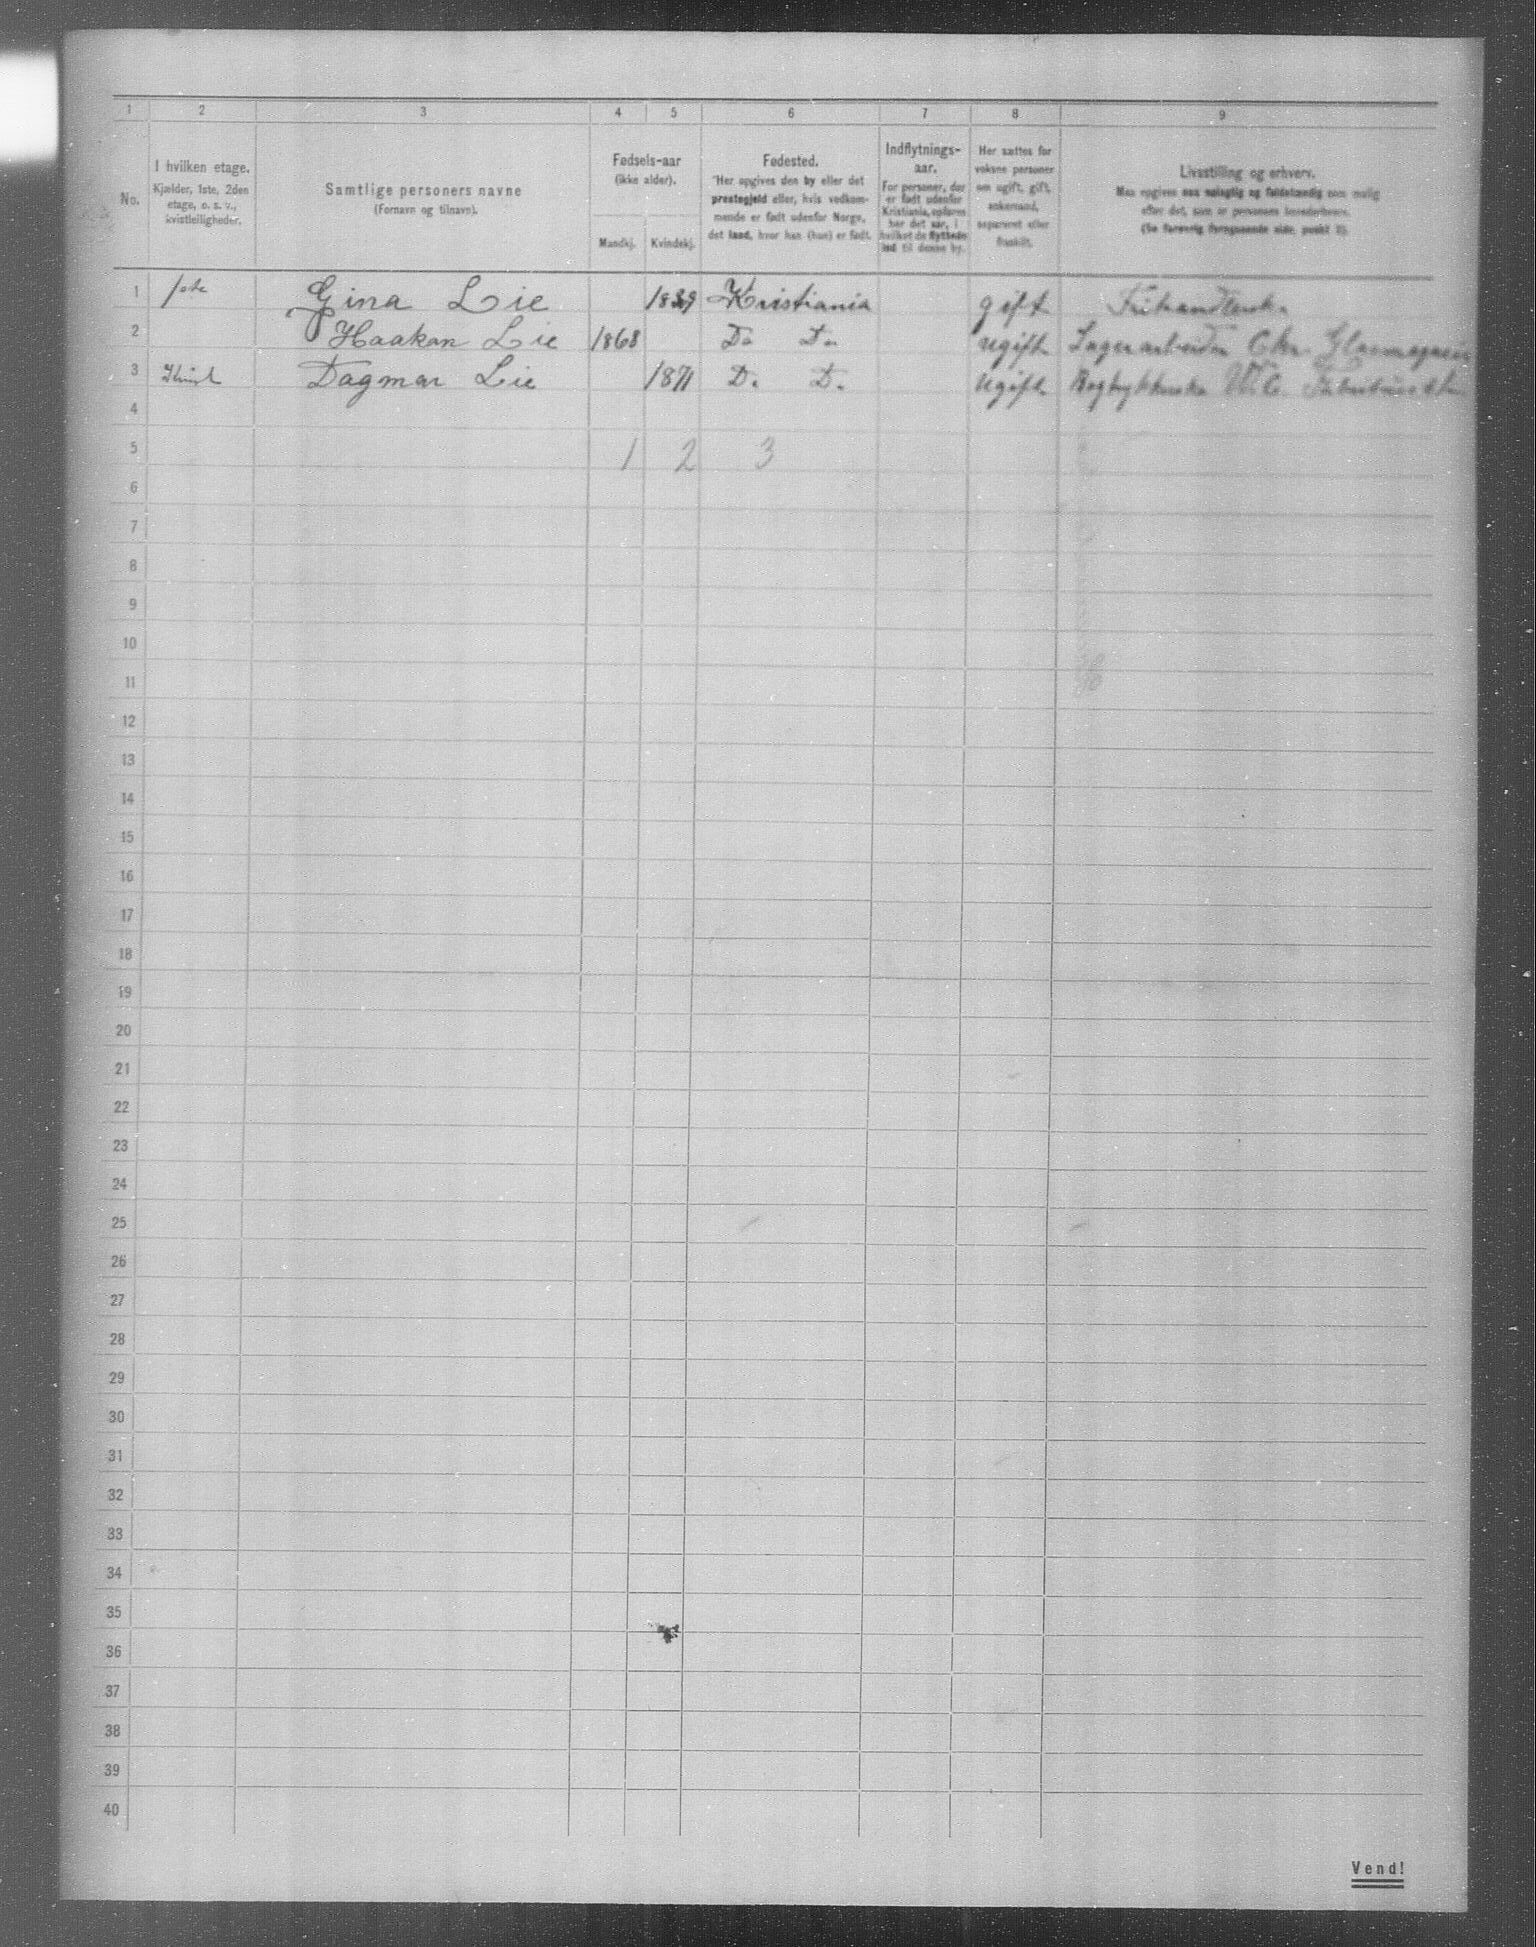 1 2 3 4 5 6 7 8 9
No.
I hvilken etage.
Kjælder, 1ste, 2den
etage, o. s. v.,
kvistleiligheder.
Samtlige personers navne
(Fornavn og tilnavn).
Fødsels-aar
(ikke alder).
Mandkj. Kvindekj.
Fødested.
Her opgives den by eller det
prestegjeld eller, hvis vedkom-
mende er født udenfor Norge,
det land, hvor han (hun) er født.
Indflytnings-
aar.
For personer, der
er født udenfor
Kristiania, opføres
her det aar, i
hvilket de flyttede
ind til denne by.
Her sættes for
voksne personer
om ugift, gift,
enkemand,
separeret eller
fraskilt.
Livsstilling og erhverv.
Maa opgives saa nøiagtig og fuldstændig som mulig
efter det, som er personens levebrød.
(Se forøvrig foregaaende side, punkt 3).
1 1ste Gina Lie 1839 Kristiania gift
2 Haakon Lie 1868 Do Do ugift Lagerarbeider Chr. Glasmagasin
3 Kvist Dagmar Lie 1871 D. D. Ugift
4
5 1 2 3
6
7
8
9
10
11
12
13
14
15
16
17
18
19
20
21
22
23
24
25
26
27
28
29
30
31
32
33
34
35
36
37
38
39
40
Vend!